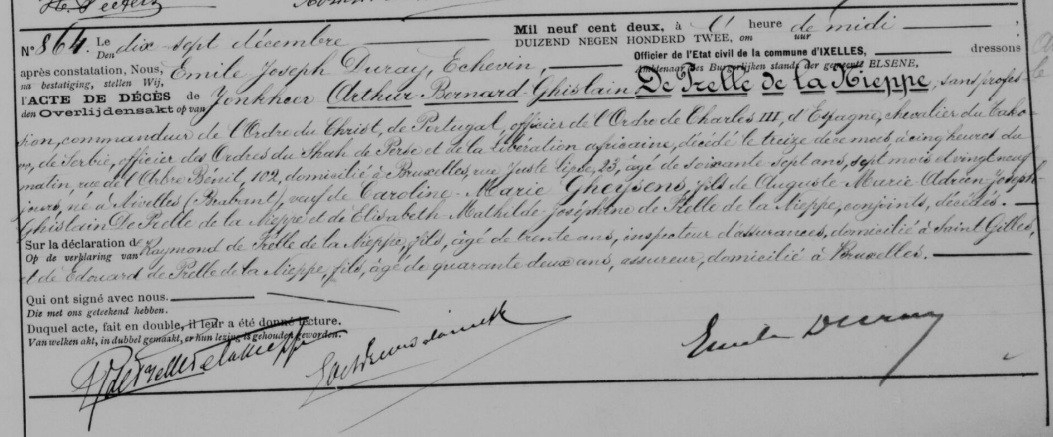 Mil neuf cent deux, à l' heure de midi
N° 864. Le dix sept décembre
Den
DUIZEND NEGEN HONDERD TWEE, om uur
Officier de l'Etat civil de la commune d'IXELLES, dressons
après constatation, Nous, Emile Joseph Duray, Echevin,
na bestatiging, stellen Wij, Ambtenaar des Burgerlijken stands der gemeente ELSENE,
l'ACTE DE DÉCÈS de Jonkheer Arthur-Bernard-Ghislain De Prelle de la Nieppe, sans profes-
den Overlijdensakt op van
sion, commandeur de l'Ordre du Christ, de Portugal, officier de l'Ordre de Charles III, d'Espagne, chevalier du Tako-
vo, de Serbie, officier des Ordres du Shah de Perse et de la Libération africaine, décédé le treize de ce mois, à cinq heures du
matin, rue de l'Arbre Bénit, 102, domicilié à Bruxelles, rue Juste Lipse, 23, âgé de soixante sept ans, sept mois et vingt neuf
jours, né à Nivelles (Brabant), veuf de Caroline-Marie Gheysens, fils de Auguste-Marie-Adrien-Joseph-
Ghislain De Prelle de la Nieppe et de Elisabeth-Mathilde-Joséphine de Prelle de la Nieppe, conjoints, décédés.
Sur la déclaration de Raymond de Prelle de la Nieppe, fils, âgé de trente ans, inspecteur d'assurances, domicilié à Saint Gilles,
Op de verklaring van
et de Edouard de Prelle de la Nieppe, fils, âgé de quarante deux ans, assureur, domicilié à Bruxelles.
Qui ont signé avec nous.
Die met ons geteekend hebben.
Duquel acte, fait en double, il leur a été donné lecture.
Van welken akt, in dubbel gemaakt, er hun lezing is gehouden geworden.
R de Prelle de la Nieppe
Emile Duray